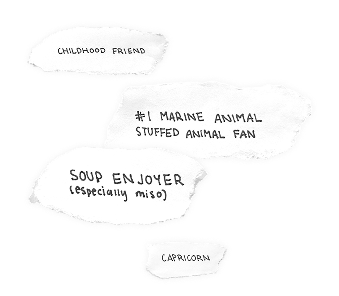 CHILDHOOD FRIEND
#1 MARINE ANIMAL
STUFFED ANIMAL FAN
SOUP ENJOYER
(especially miso)
CAPRICORN